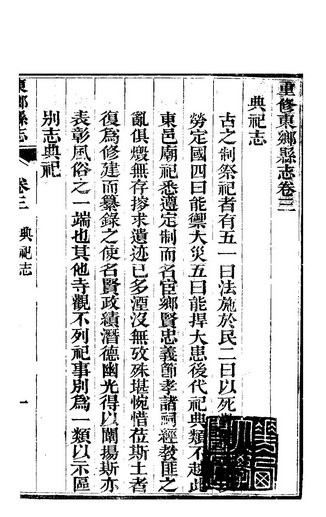 重修東鄉縣志卷三
典祀志
古之制祭祀者有五一曰法施於民二曰以死
勞定國四曰能禦大災五曰能捍大患後代祀典類不越此
東邑廟祀悉遵定制而名宦鄉賢忠義節孝諸祠經教匪之
亂俱燬無存搜求遺迹已多湮沒無攷殊堪惋惜茲斯土者
復為修建而纂錄之使名賢政績潛德幽光得以闡揚斯亦
表彰風俗之一端也其他寺觀不列祀事別為一類以示區
別志典祀
東鄉縣志
卷三
典祀志
一